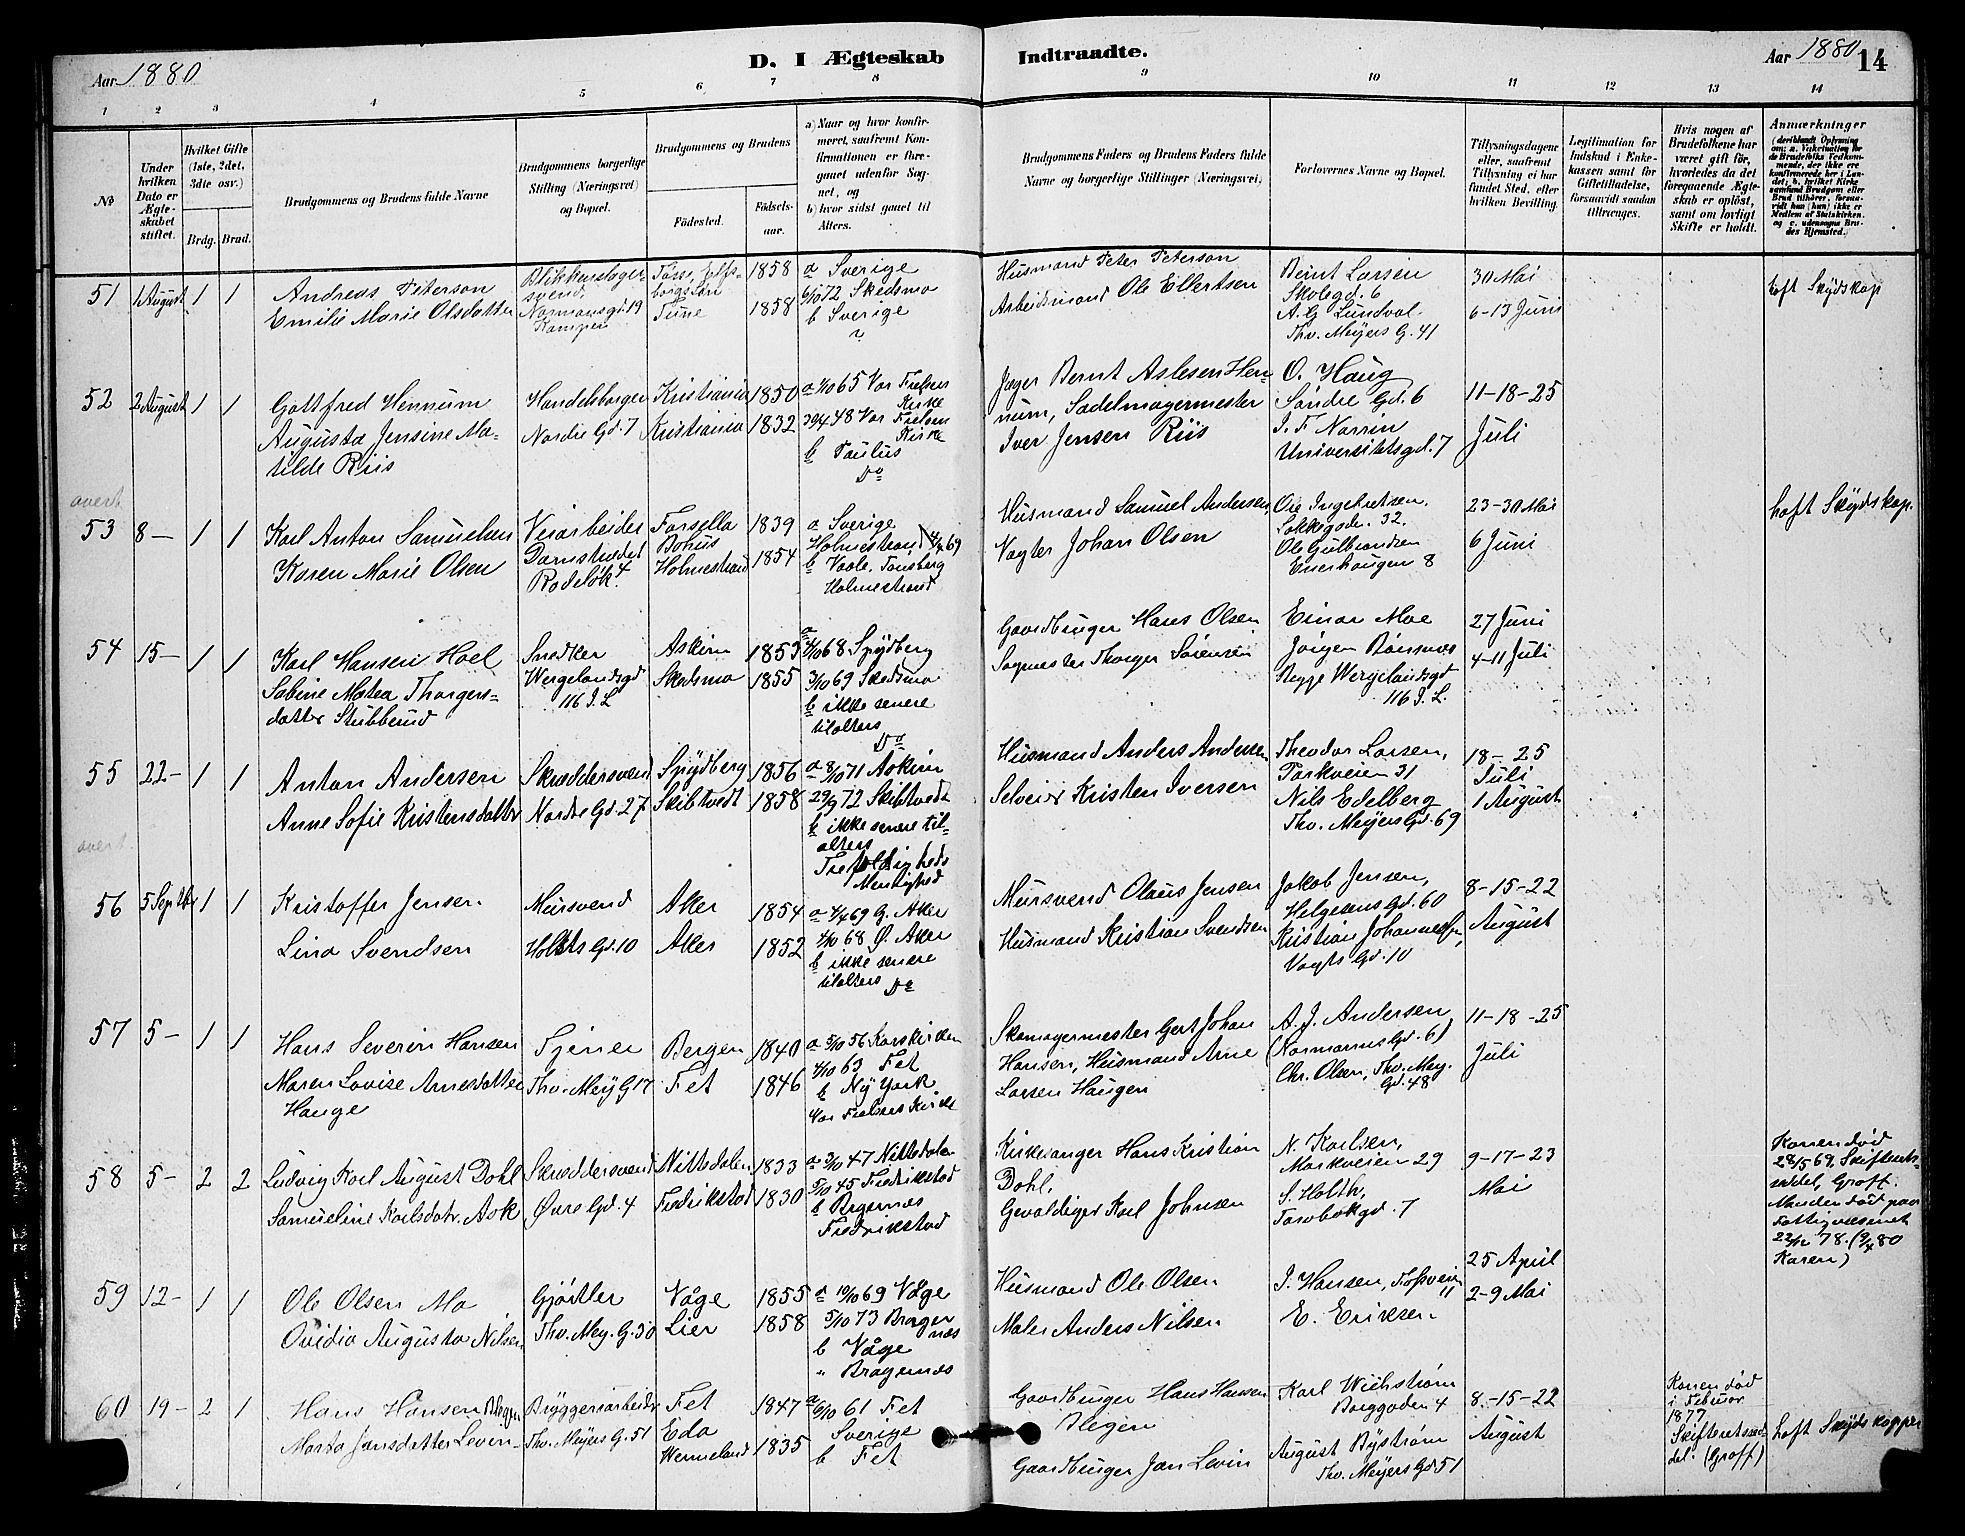 Aar 1880
D. I Ægteskab Indtraadte.
Aar 1880
14
1 2 3 4 5 6 7 8 9 10 11 12 13 14
No
Under hvilken Dato er Ægteskabet stiftet.
Hvilket Gifte (1ste, 2det, 3die osv.)
Brdg. Brud.
Brudgommens og Brudens fulde Navne
Brudgommens borgerlige Stilling (Næringsvei) og Bopæl.
Brudgommens og Brudens
Fødested.
Fødsels-aar.
a) Naar og hvor konfirmeret, saafremt Konfirmationen er foregaaet udenfor Sognet, og
b) hvor sidst gaaet til Alters.
Brudgommens Faders og Brudens Faders fulde Navne og borgerlige Stillinger (Næringsvei)
Forlovernes Navne og Bopæl.
Tillysningsdagene eller, saafremt Tillysning ei har fundet Sted, efter hvilken Bevilling.
Legitimation for Indskud i Enkekassen samt for Giftetilladelse, forsaavidt saadan tiltrænges.
Hvis nogen af Brudefolkene har været gift før, hvorledes da det foregaaende Ægteskab er opløst, samt om lovligt Skifte er holdt.
Anmærkninger
51 1 August 1 1
Andreas Peterson
Emilie Marie Olsdatter
Blikkenslager
svend,
Normansgd. 19
Kampen
Tune
1858
1858
a Sverige
6/10 72 Skedsmo
b Sverige
Husmand Peter Peterson
Arbeidsmand Ole Ellertsen
Bernt Larsen
Skolegd. 6
A. G. Lundvol.
Thv. Meyers G. 41
30 Mai
6-13 Juni
haft Skydskop
52 2 August 1 1
Gottfred Hennum
Augusta Jensine Ma-
tilde Riis
Handelsborger
Nordre Gd. 7
Kristiania
Kristiania
1850
1832
a 1/10 65 Vor Frelsers
Kirke
30/4 48 Vor Frelsers
Kirke
b Paulus
Do
Jæger Bernt Aslesen Hen-
num, Sadelmagermester
Iver Jensen Riis
O. Haug
Søndre Gd. 6
J. F. Narrin
Universitetsgd. 7
11-18-25
Juli
overt
53 8 - 1 1
Karl Anton Samuelsen
Karen Marie Olsen
Veiarbeider
Damstrædet
Rodeløk. 4
Forsella
Bohus
Holmestrand
1839
1854
a Sverige
Holmestrand 4/4 69
b Vaale, Tønsberg
Holmestrand
Husmand Samuel Andersen
Vagter Johan Olsen
Ole Ingebretsen.
Sokkegadn. 32.
Ole Gulbrandsen
Enerhaugen 8
23-30 Mai
6 Juni
haft Skydskop.
54 15 - 1 1
Karl Hansen Hoel
Sabine Matea Thorgers-
datter Stubberud
Snedker
Wergelandsgd
116 J. L
Askim
Skedsmo
1853
1855
a 4/10 68 Spydberg
3/10 69 Skedsmo
b ikke senere
tilalters
Do
Gaardbruger Hans Olsen
Sagmester Thorger Sørensen
Einar Moe
Jørgen Bønsnes
Begge Wergelandsgd
116 J. L.
27 Juni
4-11 Juli
55 22 - 1 1
Anton Andersen
Anne Sofie Kristensdatter
Skræddersvend
Nordre Gd. 27
Spydberg
Skibtvedt
1856
1858
a 8/10 71 Askim
29/9 72 Skibtvedt
b ikke senere til-
alters
Trefoldigheds
Menighed
Husmand Anders Andersen
Selveier Kristen Iversen
Theodor Larsen,
Parkveien 31
Nils Edelberg
Thv. Meyers Gd. 69
18-25
Juli
1 August
overt.
56 5 Septbr 1 1
Kristoffer Jensen
Lina Svendsen
Mursvend
Holsts Gd. 10
Aker
Aker
1854
1852
a 4/4 69 G. Aker
4/10 68 Ø. Aker
b ikke senere
tilalters Do
Mursvend Olaus Jensen
Husmand Kristian Svendsen
Jakob Jensen,
Helgesens Gd. 60
Kristian Johannessen,
Vogts Gd. 10
8-15-22
August
57 5 - 1 1
Hans Severin Hansen
Maren Lovise Arnesdatter
Hauge
Tjener
Thv. Mey G 17
Bergen
Fet
1840
1846
a 5/10 56 Korskirken
4/10 63 Fet
b Ny York
Vor Frelsers Kirke
Skomagermester Gert Johan
Hansen, Husmand Arne
Larsen Haugen
A. J. Andersen
(Normanns Gd. 6)
Chr. Olsen, Thv. Mey.
Gd. 48
11-18-25
Juli
58 5 - 2 2
Ludvig Karl August Dahl
Samueline Karlsdatr. Ask
Skræddersvend
Øvre Gd. 4
Nittedalen
Fredrikstad
1833
1830
a 3/10 47 Nittedalen
5/10 45 Fredrikstad
b Bragernes
Fredrikstad
Kirkesanger Hans Kristian
Dahl.
Gevaldiger Karl Johnsen
N. Karlsen,
Markveien 29
S. Holth,
9-17-23
Mai
Konen død
28/5 69, Skifterets-
seddel, Groff.
Manden død paa
Fattigvæsenet
22/12 78. (9/4 80
Karen)
59 12 - 1 1
Ole Olsen Mo
Ovidia Augusta Nilsen
Gjørtler
Thv. Mey. G. 30
Våge
Lier
1855
1858
a 10/10 69 Våge
5/10 73 Brager
næs
b Våge
" Bragernæs
Husmand Ole Olsen
Maler Anders Nilsen
J. Hansen, Fossveien
11
E. Eriksen
25 April
2-9 Mai
60 19 - 2 1
Hans Hansen Blegen
Marta Jansdatter Levin
Bryggeriarbeider
Thv. Meyers G. 51
Fet
Eda
Wermeland
1847
1835
a 6/10 61 Fet
Sverige
b Fet
Gaardbruger Hans Hansen
Blegen
Gaardbruger Jan Levin
Karl Wichstrøm
Borggaden 4
August Bystrøm
Thv. Meyers Gd 51
8-15-22
August
Konen død
i Februar
1877
Skifteretssed-
del. (Groff)
haft Skydskopper